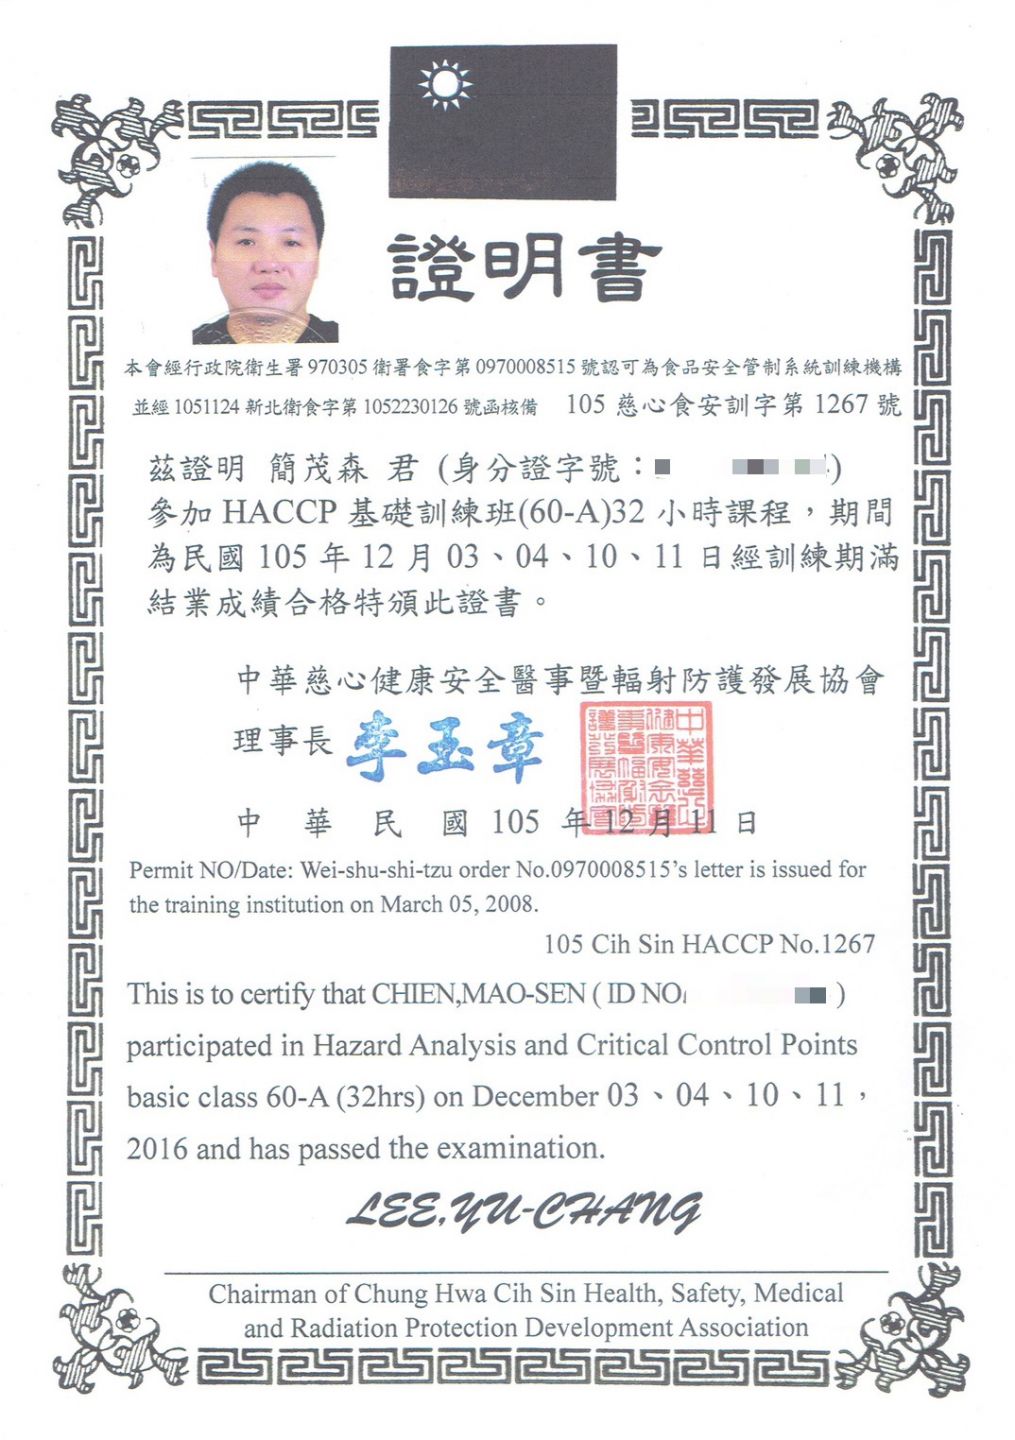 證明書
本會經行政院衛生署970305衛署食字第0970008515號認可為食品安全管制系統訓練機構
並經1051124新北衛食字第1052230126號函核備 105慈心食安訓字第1267號
茲證明 簡茂森 君 (身分證字號： )
參加HACCP基礎訓練班(60-A)32小時課程，期間
為民國105年12月03、04、10、11日經訓練期滿
結業成績合格特頒此證書。
中華慈心健康安全醫事暨輻射防護發展協會
理事長 李玉章
中華民國105年12月11日
Permit NO/Date: Wei-shu-shi-tzu order No.0970008515's letter is issued for
the training institution on March 05, 2008.
105 Cih Sin HACCP No.1267
This is to certify that CHIEN,MAO-SEN ( ID NO: )
participated in Hazard Analysis and Critical Control Points
basic class 60-A (32hrs) on December 03、04、10、11，
2016 and has passed the examination.
LEE,YU-CHANG
Chairman of Chung Hwa Cih Sin Health, Safety, Medical
and Radiation Protection Development Association